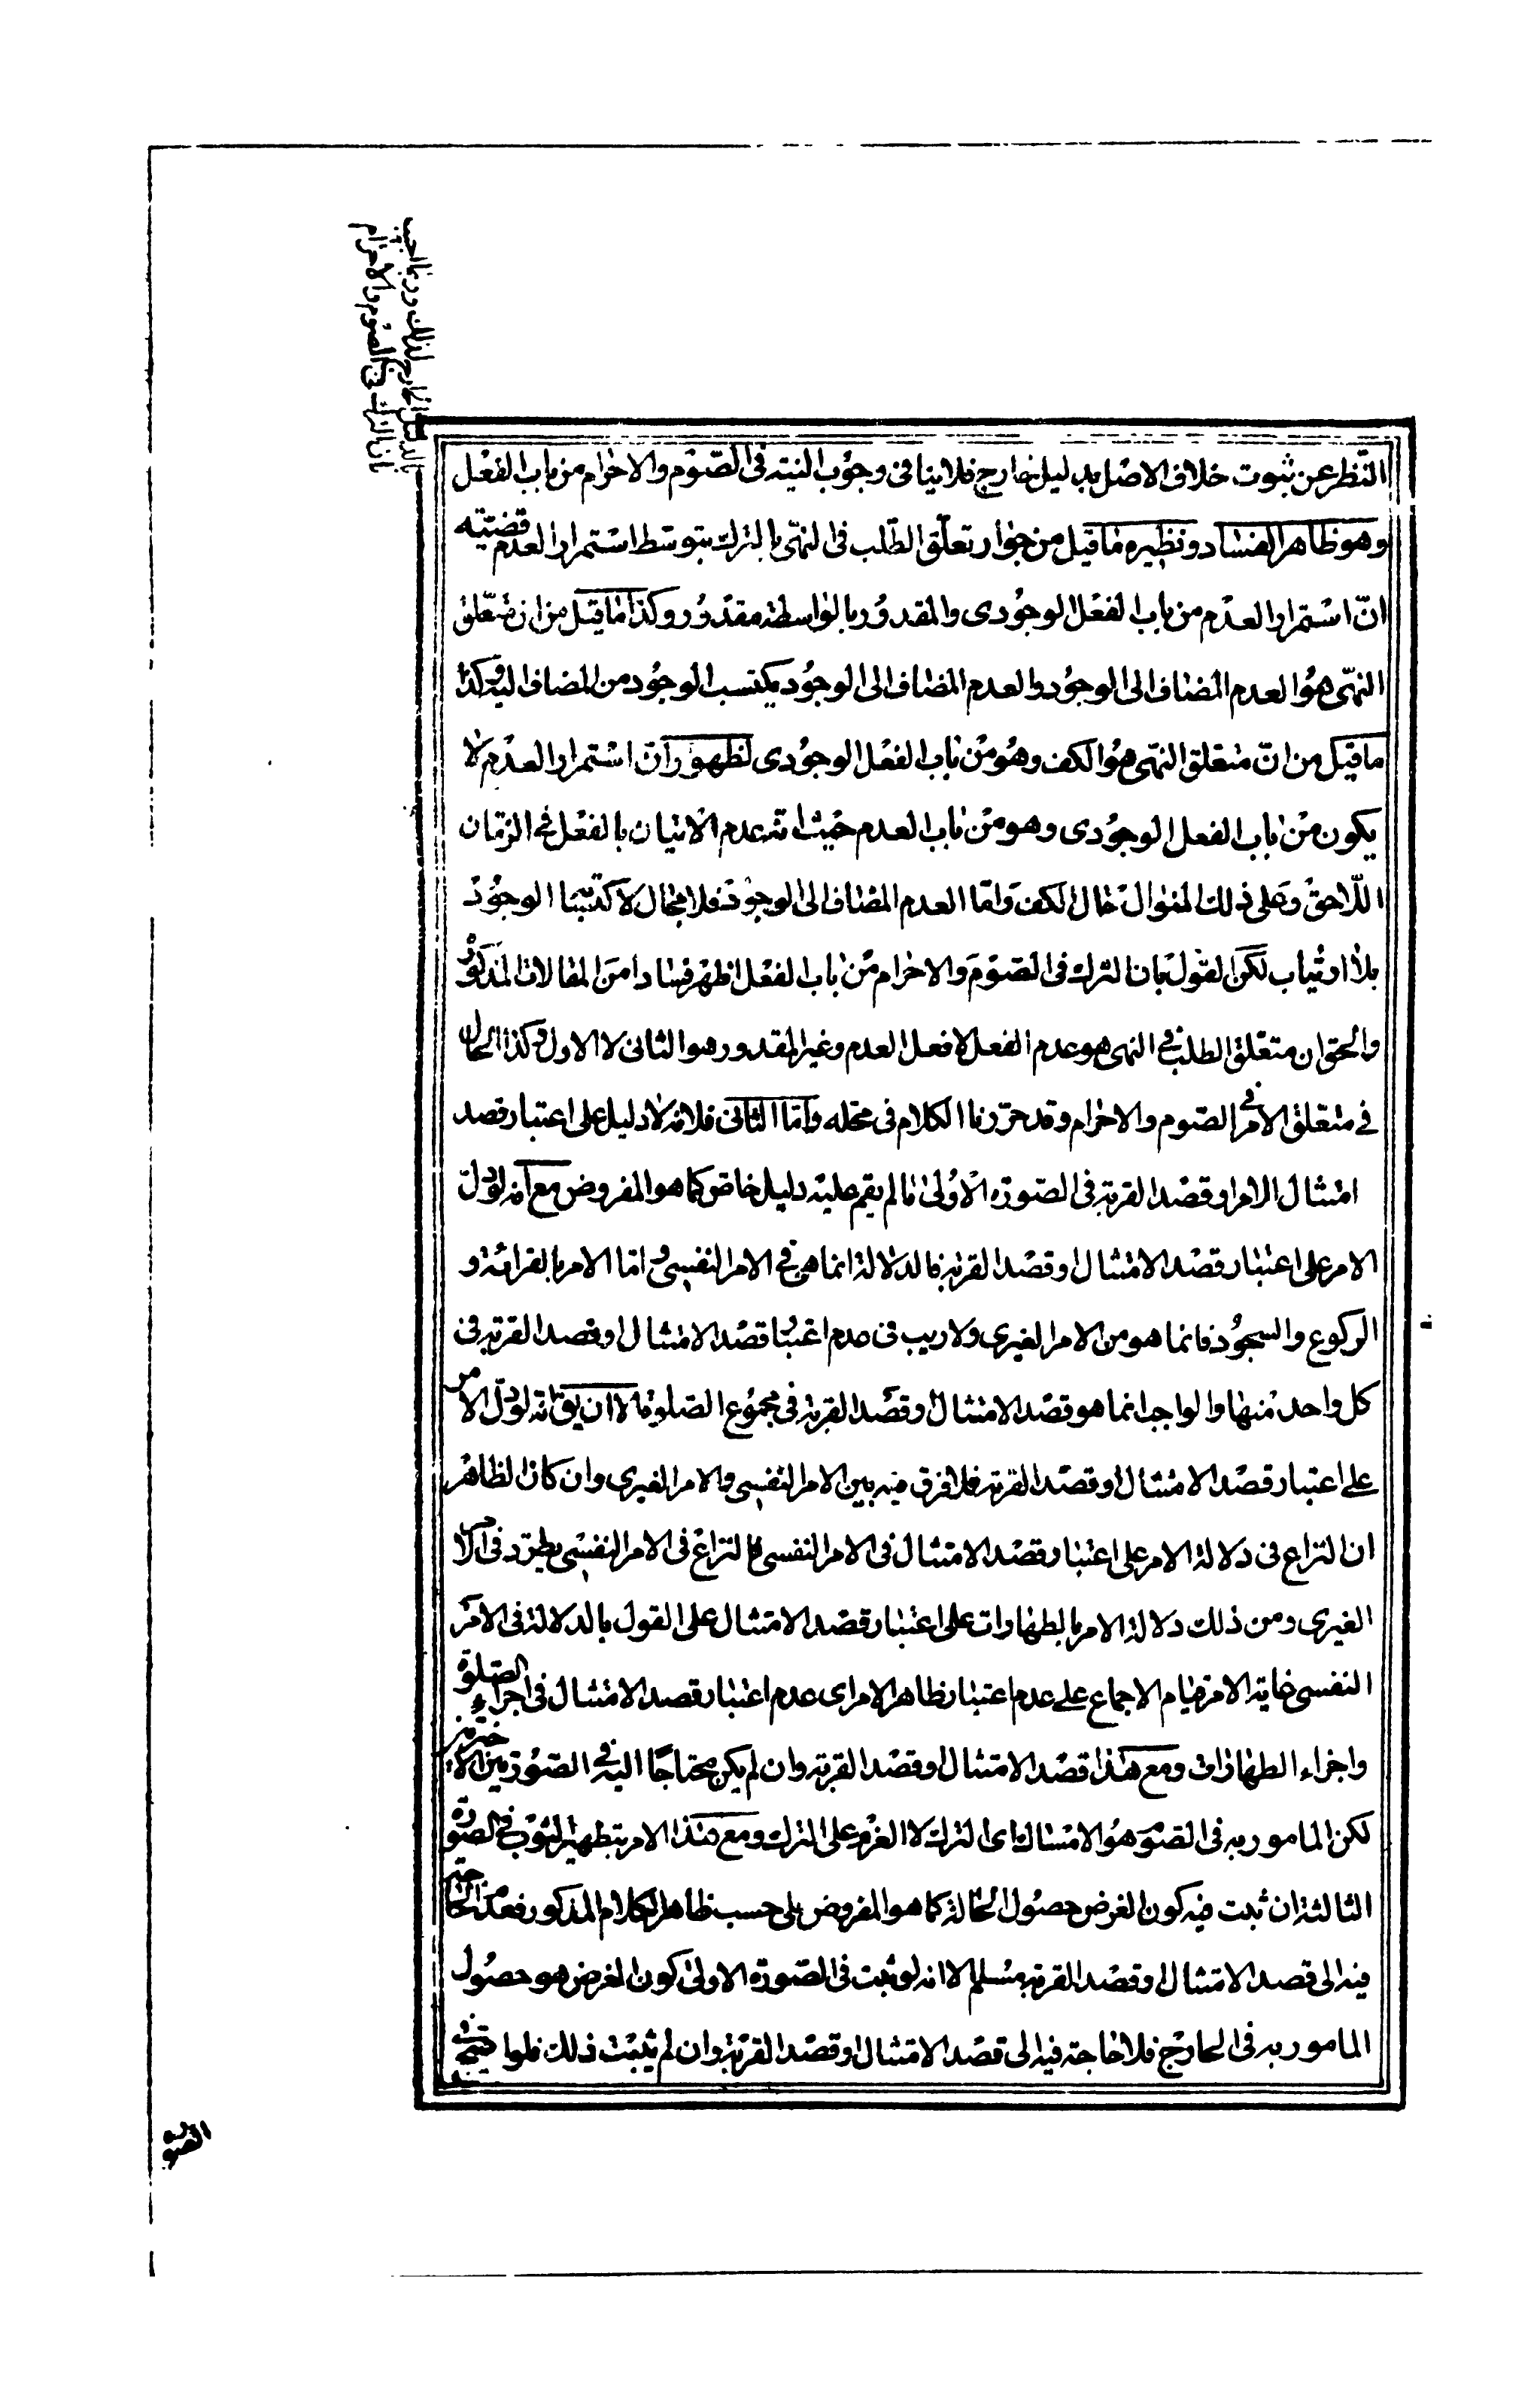 النّظر عن ثبوت خلاف الاصل بدليل خارج فلا ينافى وجوب النية فى الصّوم والاحرام من باب الفعل
وهو ظاهر الفساد ونظيره ما قيل من جواز تعلّق الطّلب فى النهى بالترك بتوسّط استمرار العدم قضيّته
انّ استمرار العدم من باب الفعل الوجودى والمقدور بالواسطة مقدور وكذا ما قيل من ان متعلق
النهى هو العدم المضاف الى الوجود والعدم المضاف الى الوجود يكتسب الوجود من المضاف اليه وكذا
ما قيل من انّ متعلق النهى هو الكف وهو من باب الفعل الوجودى لظهور انّ استمرار العدم لا
يكون من باب الفعل الوجودى وهو من باب العدم حيث انّه عدم الاتيان بالفعل فى الزّمان
اللّاحق وعلى ذلك المنوال حال الكف وامّا العدم المضاف الى الوجود فلا مجال لاكتساب الوجود
بلا ارتياب لكن القول بان الترك فى الصّوم والاحرام من باب الفعل اظهر فسادا من المقالات المذكورة
والحق ان متعلق الطلب فى النهى هو عدم الفعل لا فعل العدم وغير المقدور هو الثانى لا الاول وكذا الحال
فى متعلق الامر فى الصّوم والاحرام وقد حرّرنا الكلام فى محله وامّا الثانى فلانه لا دليل على اعتبار قصد
امتثال الامر او قصد القربة فى الصّورة الاولى ما لم يقم عليه دليل خاص كما هو المفروض مع انه لو دلّ
الامر على اعتبار قصد الامتثال او قصد القربة فالدلالة انما هى فى الامر النفسى وامّا الامر بالقرائة و
الركوع والسجود فانما هو من الامر الغيرى ولا ريب فى عدم اعتبار قصد الامتثال او قصد القربة فى
كل واحد منها والواجب انما هو قصد الامتثال او قصد القربة فى مجموع الصلوة الا ان يق انّه لو دلّ الامر
على اعتبار قصد الامتثال او قصد القربة فلا فرق فيه بين الامر النفسى والامر الغيرى وان كان الظاهر
ان النزاع فى دلالة الامر على اعتبار قصد الامتثال فى الامر النفسى فالنزاع فى الامر النفسى يطرّد فى الامر
الغيرى ومن ذلك دلالة الامر بالطهارات على اعتبار قصد الامتثال على القول بالدلالة فى الامر
النفسى غاية الامر قيام الاجماع على عدم اعتبار ظاهر الامر اى عدم اعتبار قصد الامتثال فى اجزاء الصلوة
واجزاء الطهارات ومع هذا قصد الامتثال او قصد القربة وان لم يكن محتاجا اليه فى الصّورتين الاخيرتين
لكن المامور به فى الصّوم هو الامساك اى الترك لا العزم على الترك ومع هذا الامر بتطهير الثوب فى الصّورة
الثالثة ان ثبت فيه كون الغرض حصول الحالة كما هو المفروض على حسب ظاهر الكلام المذكور فعدم الحاجة
فيه الى قصد الامتثال او قصد القربة مسلم الا انه لو ثبت فى الصّورة الاولى كون الغرض هو حصول
المامور به فى الخارج فلا حاجة فيه الى قصد الامتثال او قصد القربة وان لم يثبت ذلك فلو